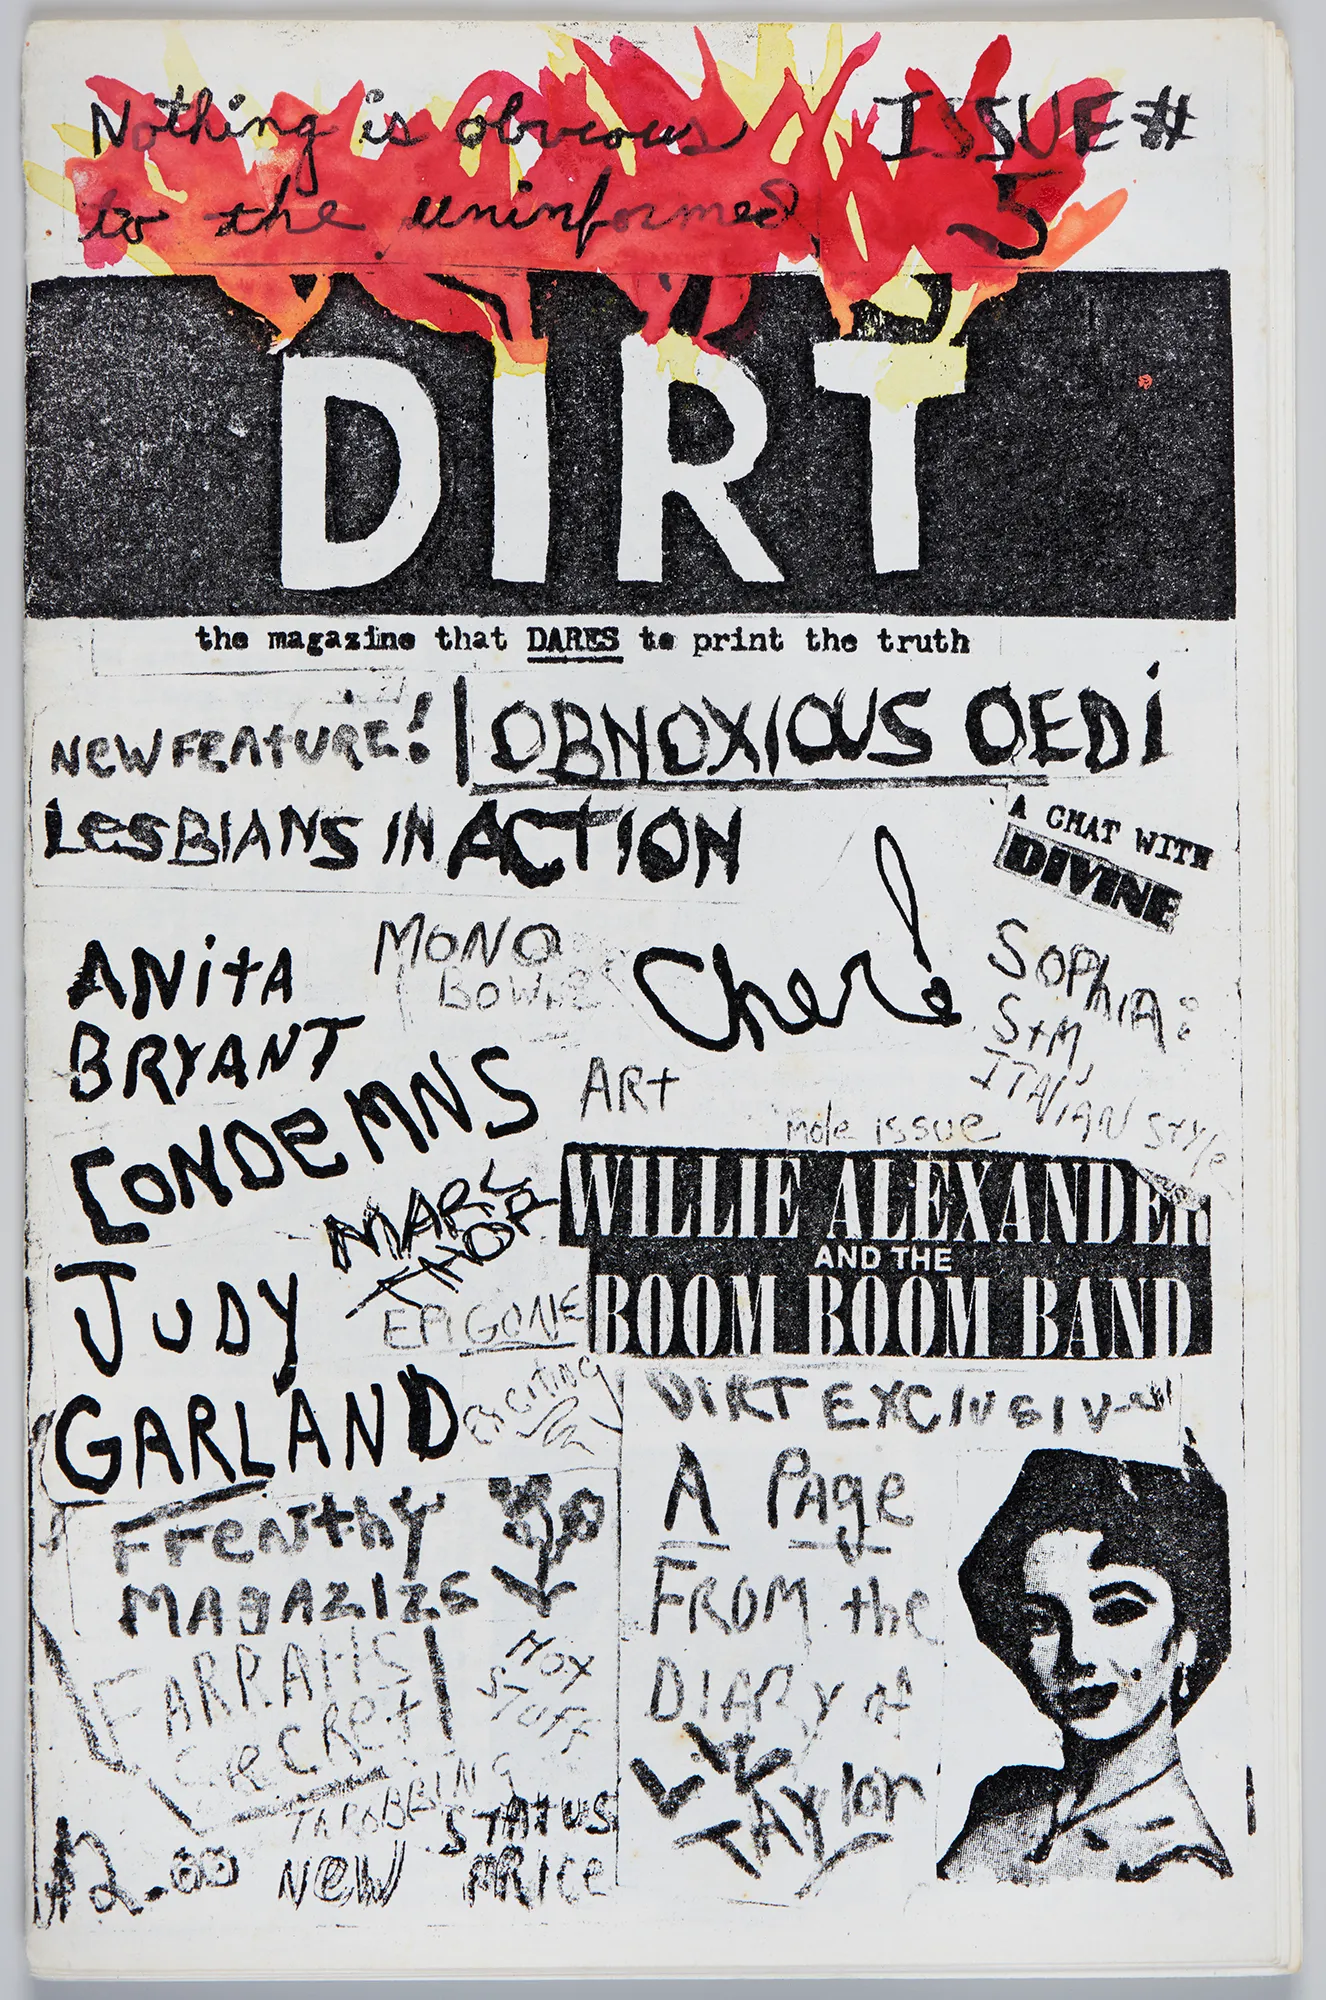 Nothing is obvious
to the uninformed
ISSUE #
5
DIRT
the magazine that DARES to print the truth
NEW FEATURE!
OBNOXIOUS OEDi
LesBIANS IN ACTION
A CHAT WITH
DIVINE
ANitA
BRYANT
CONDeMNS
JuDy
GARLAND
MONO
Cher!
SOPhIA:
S+M,
ITALIAN STYle
ARt
mole issue
WILLIE ALEXANDER
AND THE
BOOM BOOM BAND
MARL
EPIGONE
exciting
DIRT EXCluSIVe
A PAge
FROM the
DIARy of
Liz
TAYlor
FFenthy
MAgAZIZe
FARRAHS
SeCRet
HOT
STUFF
THROBBING
STATUS
$2.00
New
PRICe